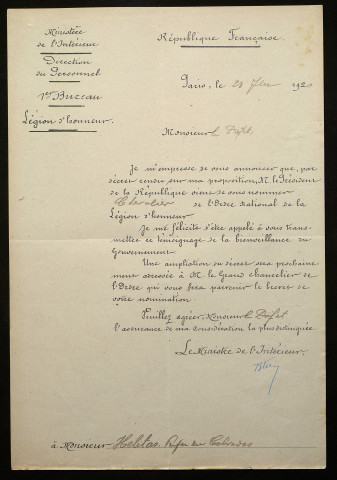 Ministère
de l'Intérieur
Direction
du Personnel
1er Bureau
Légion d'honneur.
République Française.
Paris, le 1920
Monsieur le Préfet,
Je m'empresse de vous annoncer que, par
décret rendu sur ma proposition, M. le Président
de la République vient de vous nommer
Chevalier de l'Ordre national de la
Légion d'honneur.
Je me félicite d'être appelé à vous trans-
mettre ce témoignage de la bienveillance du
Gouvernement.
Une ampliation du décret sera prochaine-
ment adressée à M. le Grand Chancelier de
l'Ordre qui vous fera parvenir le brevet de
votre nomination.
Veuillez agréer, Monsieur le Préfet,
l'assurance de ma considération la plus distinguée.
Le Ministre de l'Intérieur,
à Monsieur Helitas, Préfet du Calvados